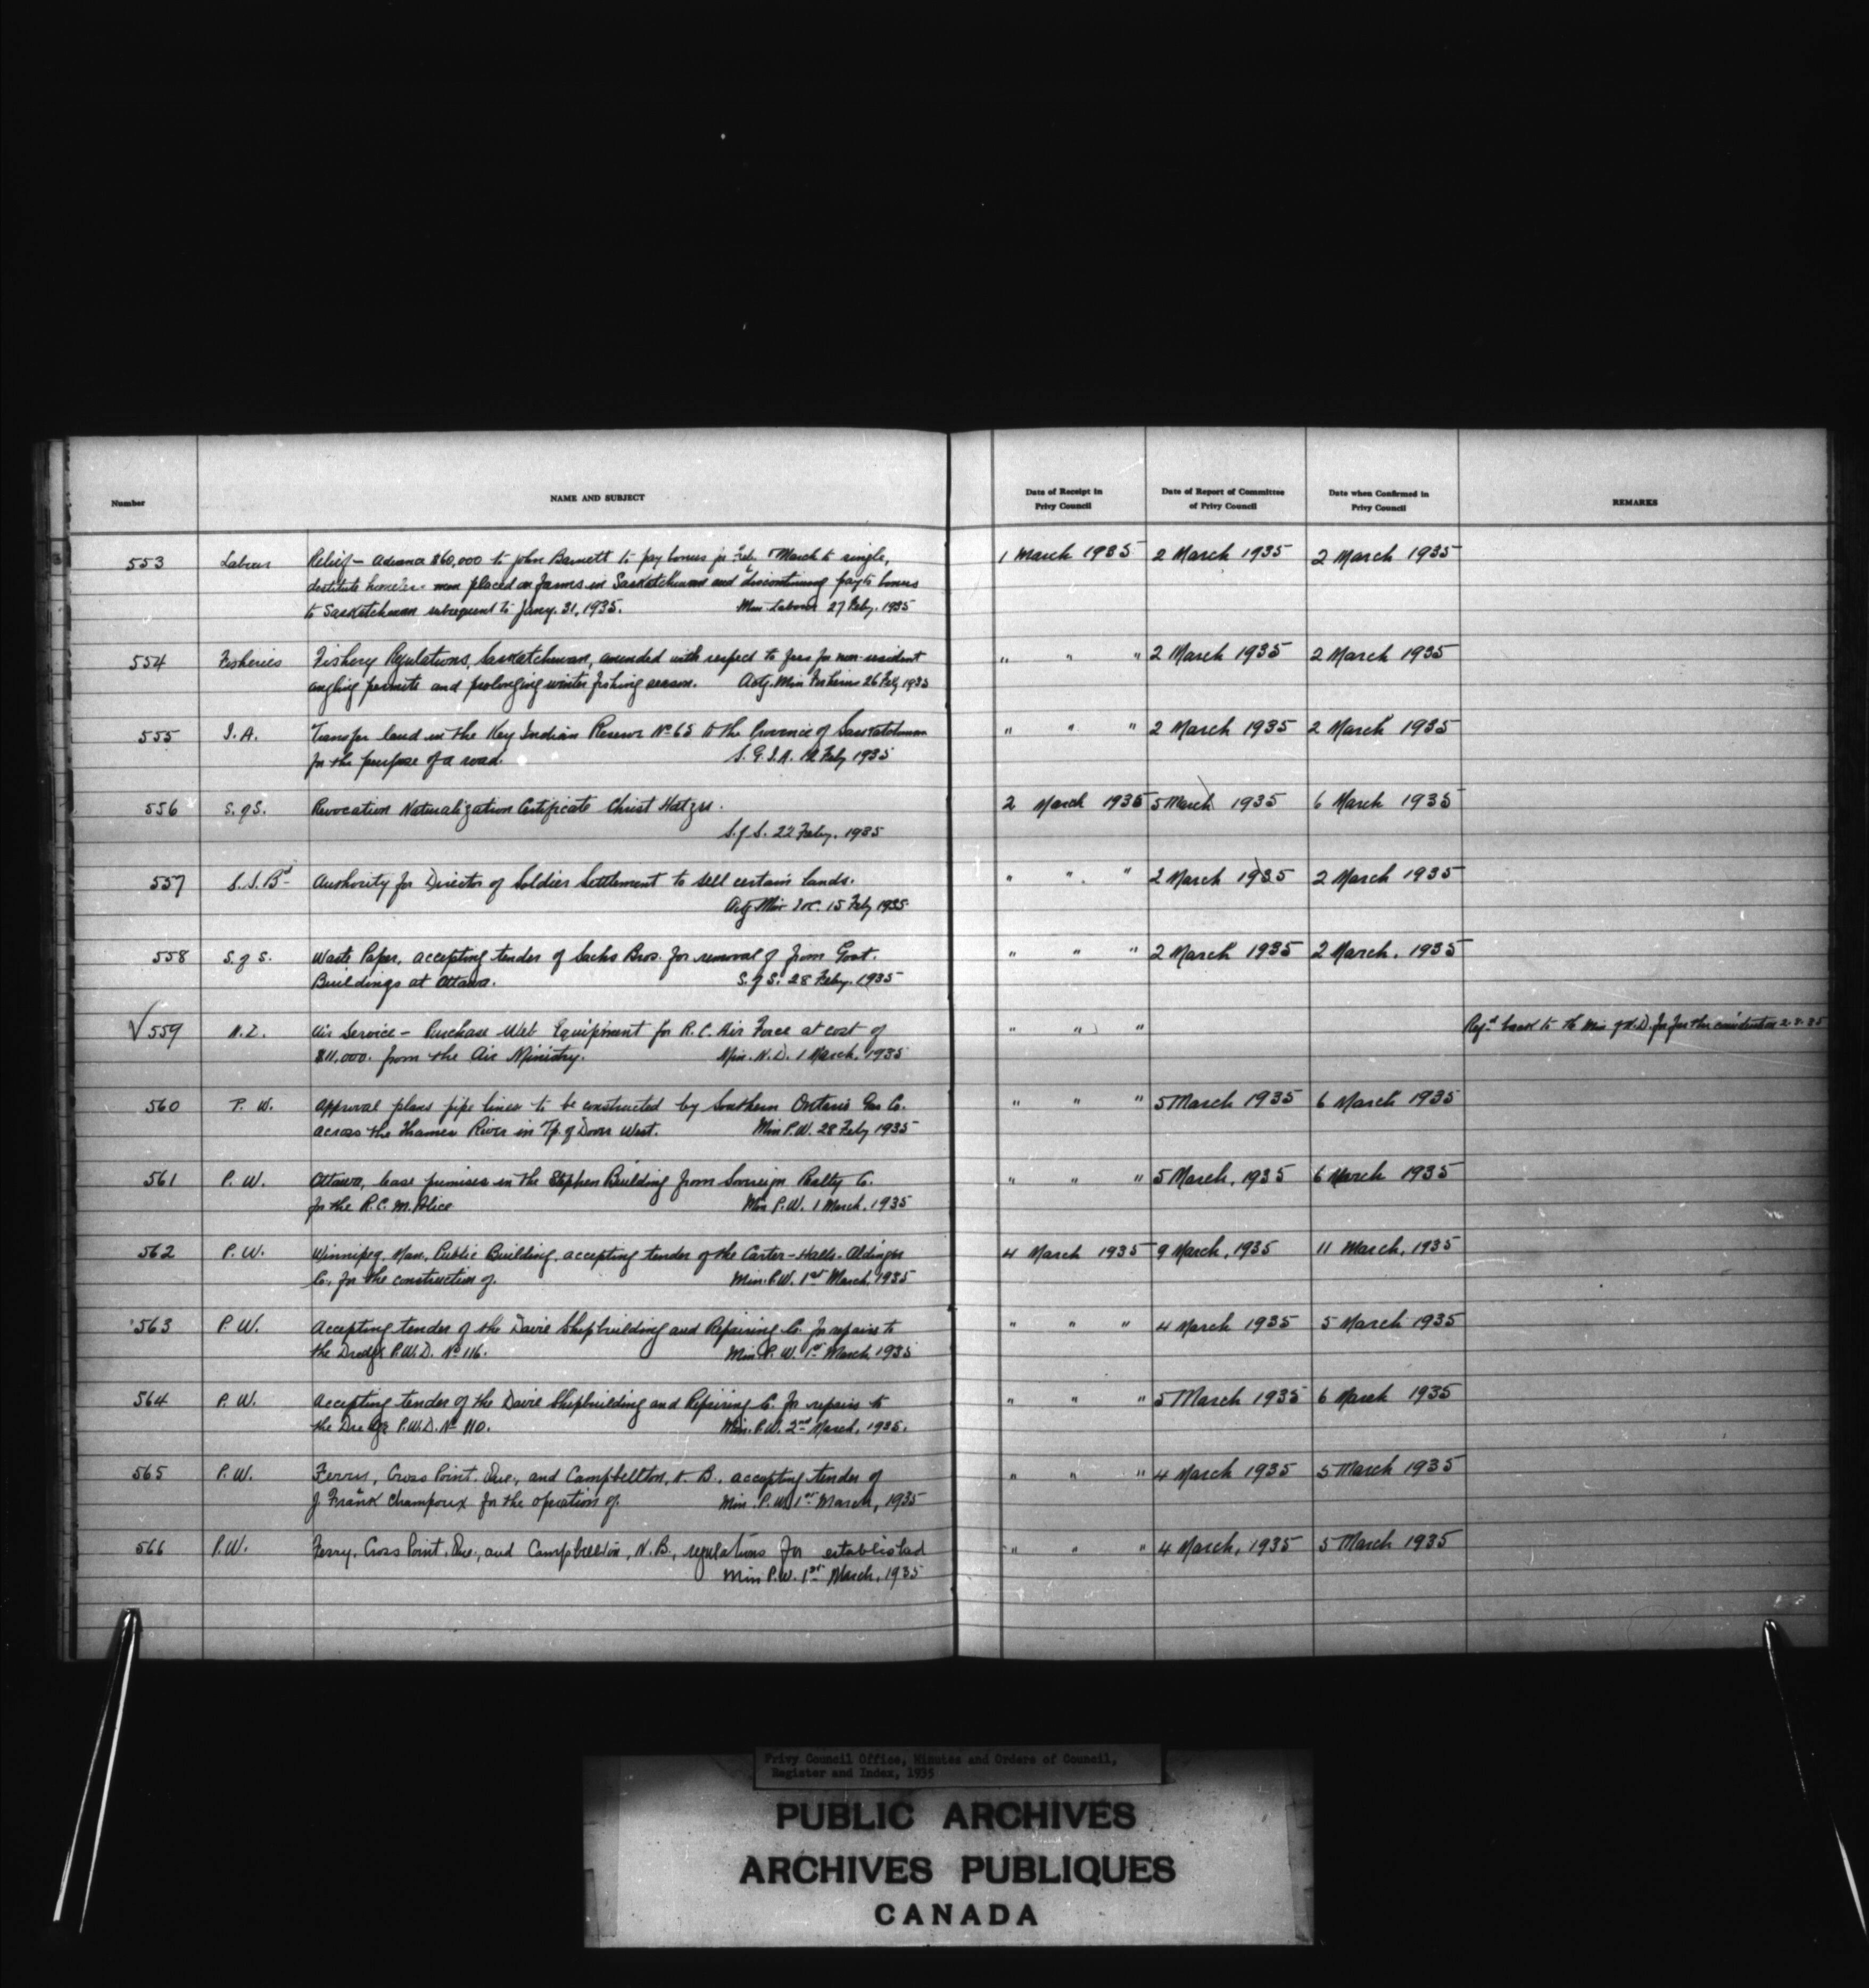 Number
NAME AND SUBJECT
Date of Receipt in
Privy Council
Date of Report of Committee
of Privy Council
Date when Confirmed in
Privy Council
REMARKS
553 Labour Relief – Advance $60,000 to John Barnett to pay bonus for Feb. & March to single, 1 March 1935 2 March 1935 2 March 1935
destitute homeless men placed on farms in Saskatchewan and discontinuing payts bonus
to Saskatchewan subsequent to Jany. 31, 1935. Min Labour 27 Feby. 1935
554 Fisheries Fishery Regulations, Saskatchewan, amended with respect to fees for non-resident " " " 2 March 1935 2 March 1935
angling permits and prolonging winter fishing season. Actg. Min Fisheries 26 Feby 1935
555 I.A. Transfer land in the Key Indian Reserve No 65 to the Province of Saskatchewan " " " 2 March 1935 2 March 1935
for the purpose of a road. S.G.I.A. 12 Feby 1935
556 S. of S. Revocation Naturalization Certificate Christ Hatzes. 2 March 1935 5 March 1935 6 March 1935
S. of S. 22 Feby. 1935
557 S.S. Bd Authority for Director of Soldier Settlement to sell certain lands. " " " 2 March 1935 2 March 1935
Actg Min 15 Feby 1935
558 S. of S. Waste Paper, accepting tender of Sachs Bros. for removal of from Govt. " " " 2 March 1935 2 March. 1935
Buildings at Ottawa. S. of S. 28 Feby. 1935
√ 559 N.D. Air Service – Purchase Web Equipment for R.C. Air Force at cost of " " " Refd back to the Min of N.D. for further consideration 2.3.35
$11,000. from the Air Ministry. Min. N.D. 1 March. 1935
560 P. W. Approval plans pipe lines to be constructed by Southern Ontario Gas Co. " " " 5 March 1935 6 March 1935
across the Thames River in Tp. of Dover West. Min P.W. 28 Feby 1935
561 P. W. Ottawa, lease premises in the Stephen Building from Sovereign Realty Co. " " " 5 March, 1935 6 March 1935
for the R.C.M. Police Min P.W. 1 March. 1935
562 P. W. Winnipeg, Man. Public Building, accepting tender of the Carter-Halls-Aldinger 4 March 1935 9 March, 1935 11 March, 1935
Co. for the construction of. Min. P.W. 1st March, 1935
563 P. W. Accepting tender of the Davie Shipbuilding and Repairing Co. for repairs to " " " 4 March 1935 5 March 1935
the Dredge P.W.D. No 116. Min P. W. 1st March 1935
564 P. W. Accepting tender of the Davie Shipbuilding and Repairing Co. for repairs to " " " 5 March 1935 6 March 1935
the Dredge P.W.D. No 110. Min. P.W. 2nd March, 1935.
565 P. W. Ferry, Cross Point. Que., and Campbellton, N. B., accepting tender of " " " 4 March 1935 5 March 1935
J. Frank Champoux for the operation of. Min. P.W. 1st March, 1935
566 P.W. Ferry, Cross Point. Que., and Campbellton, N.B., regulations for established " " " 4 March, 1935 5 March 1935
Min P.W. 1st March, 1935
Privy Council Office, Minutes and Orders of Council,
Register and Index, 1935
PUBLIC ARCHIVES
ARCHIVES PUBLIQUES
CANADA